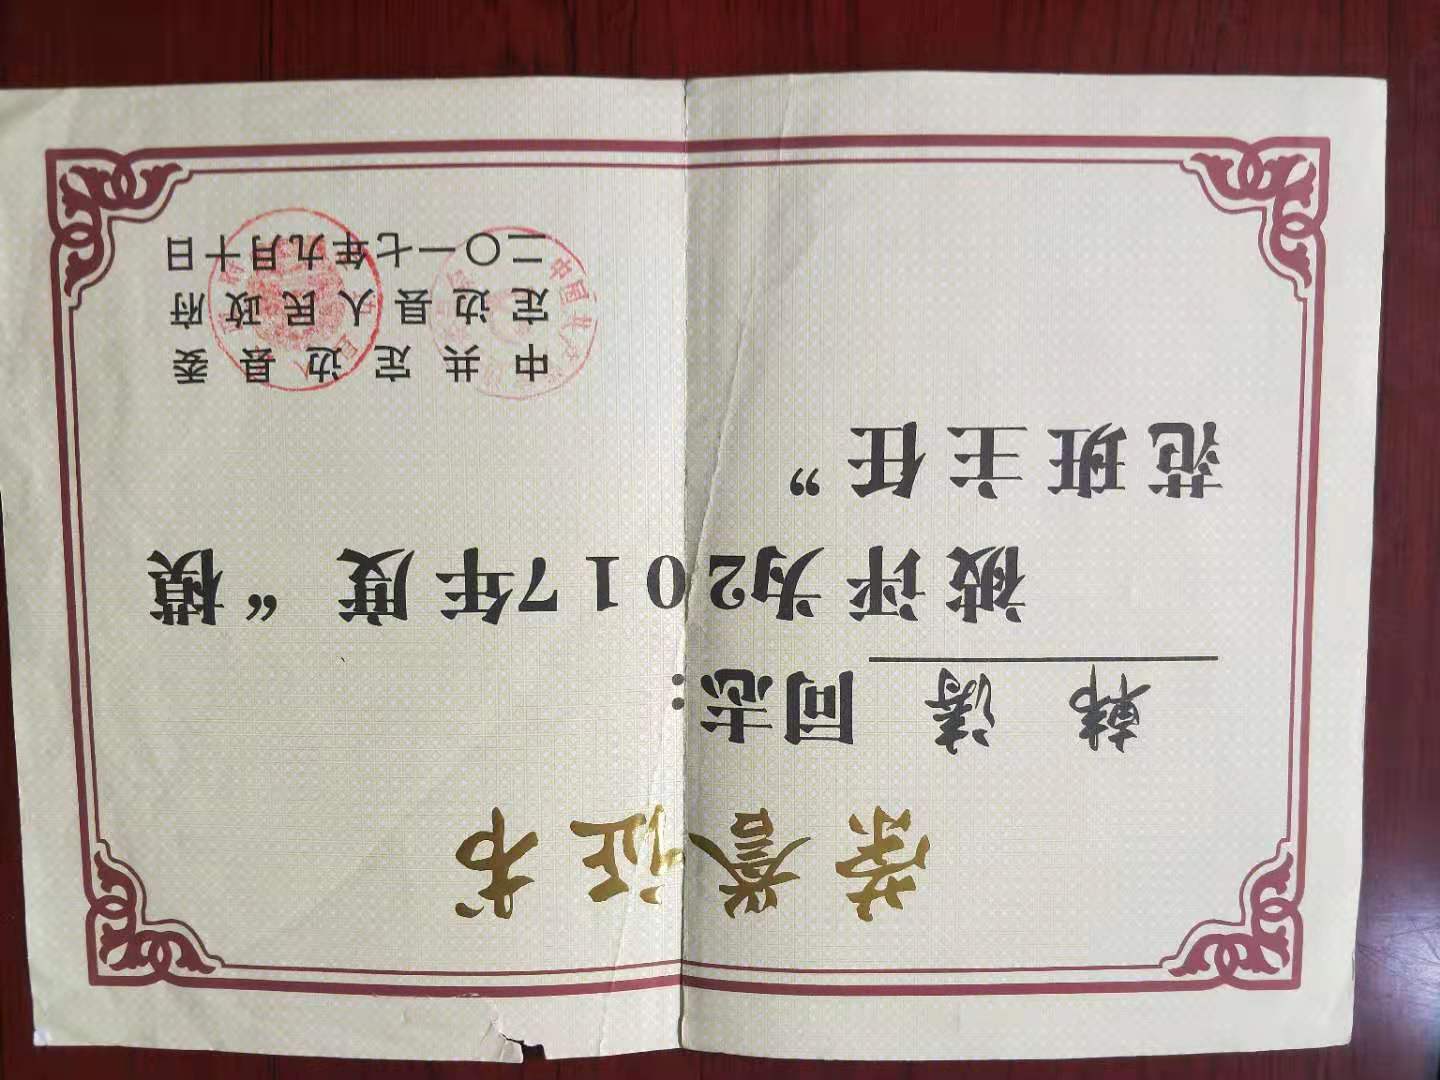 荣誉证书
韩涛同志：
被评为2017年度“模
范班主任”
中共定边县委
定边县人民政府
二〇一七年九月十日